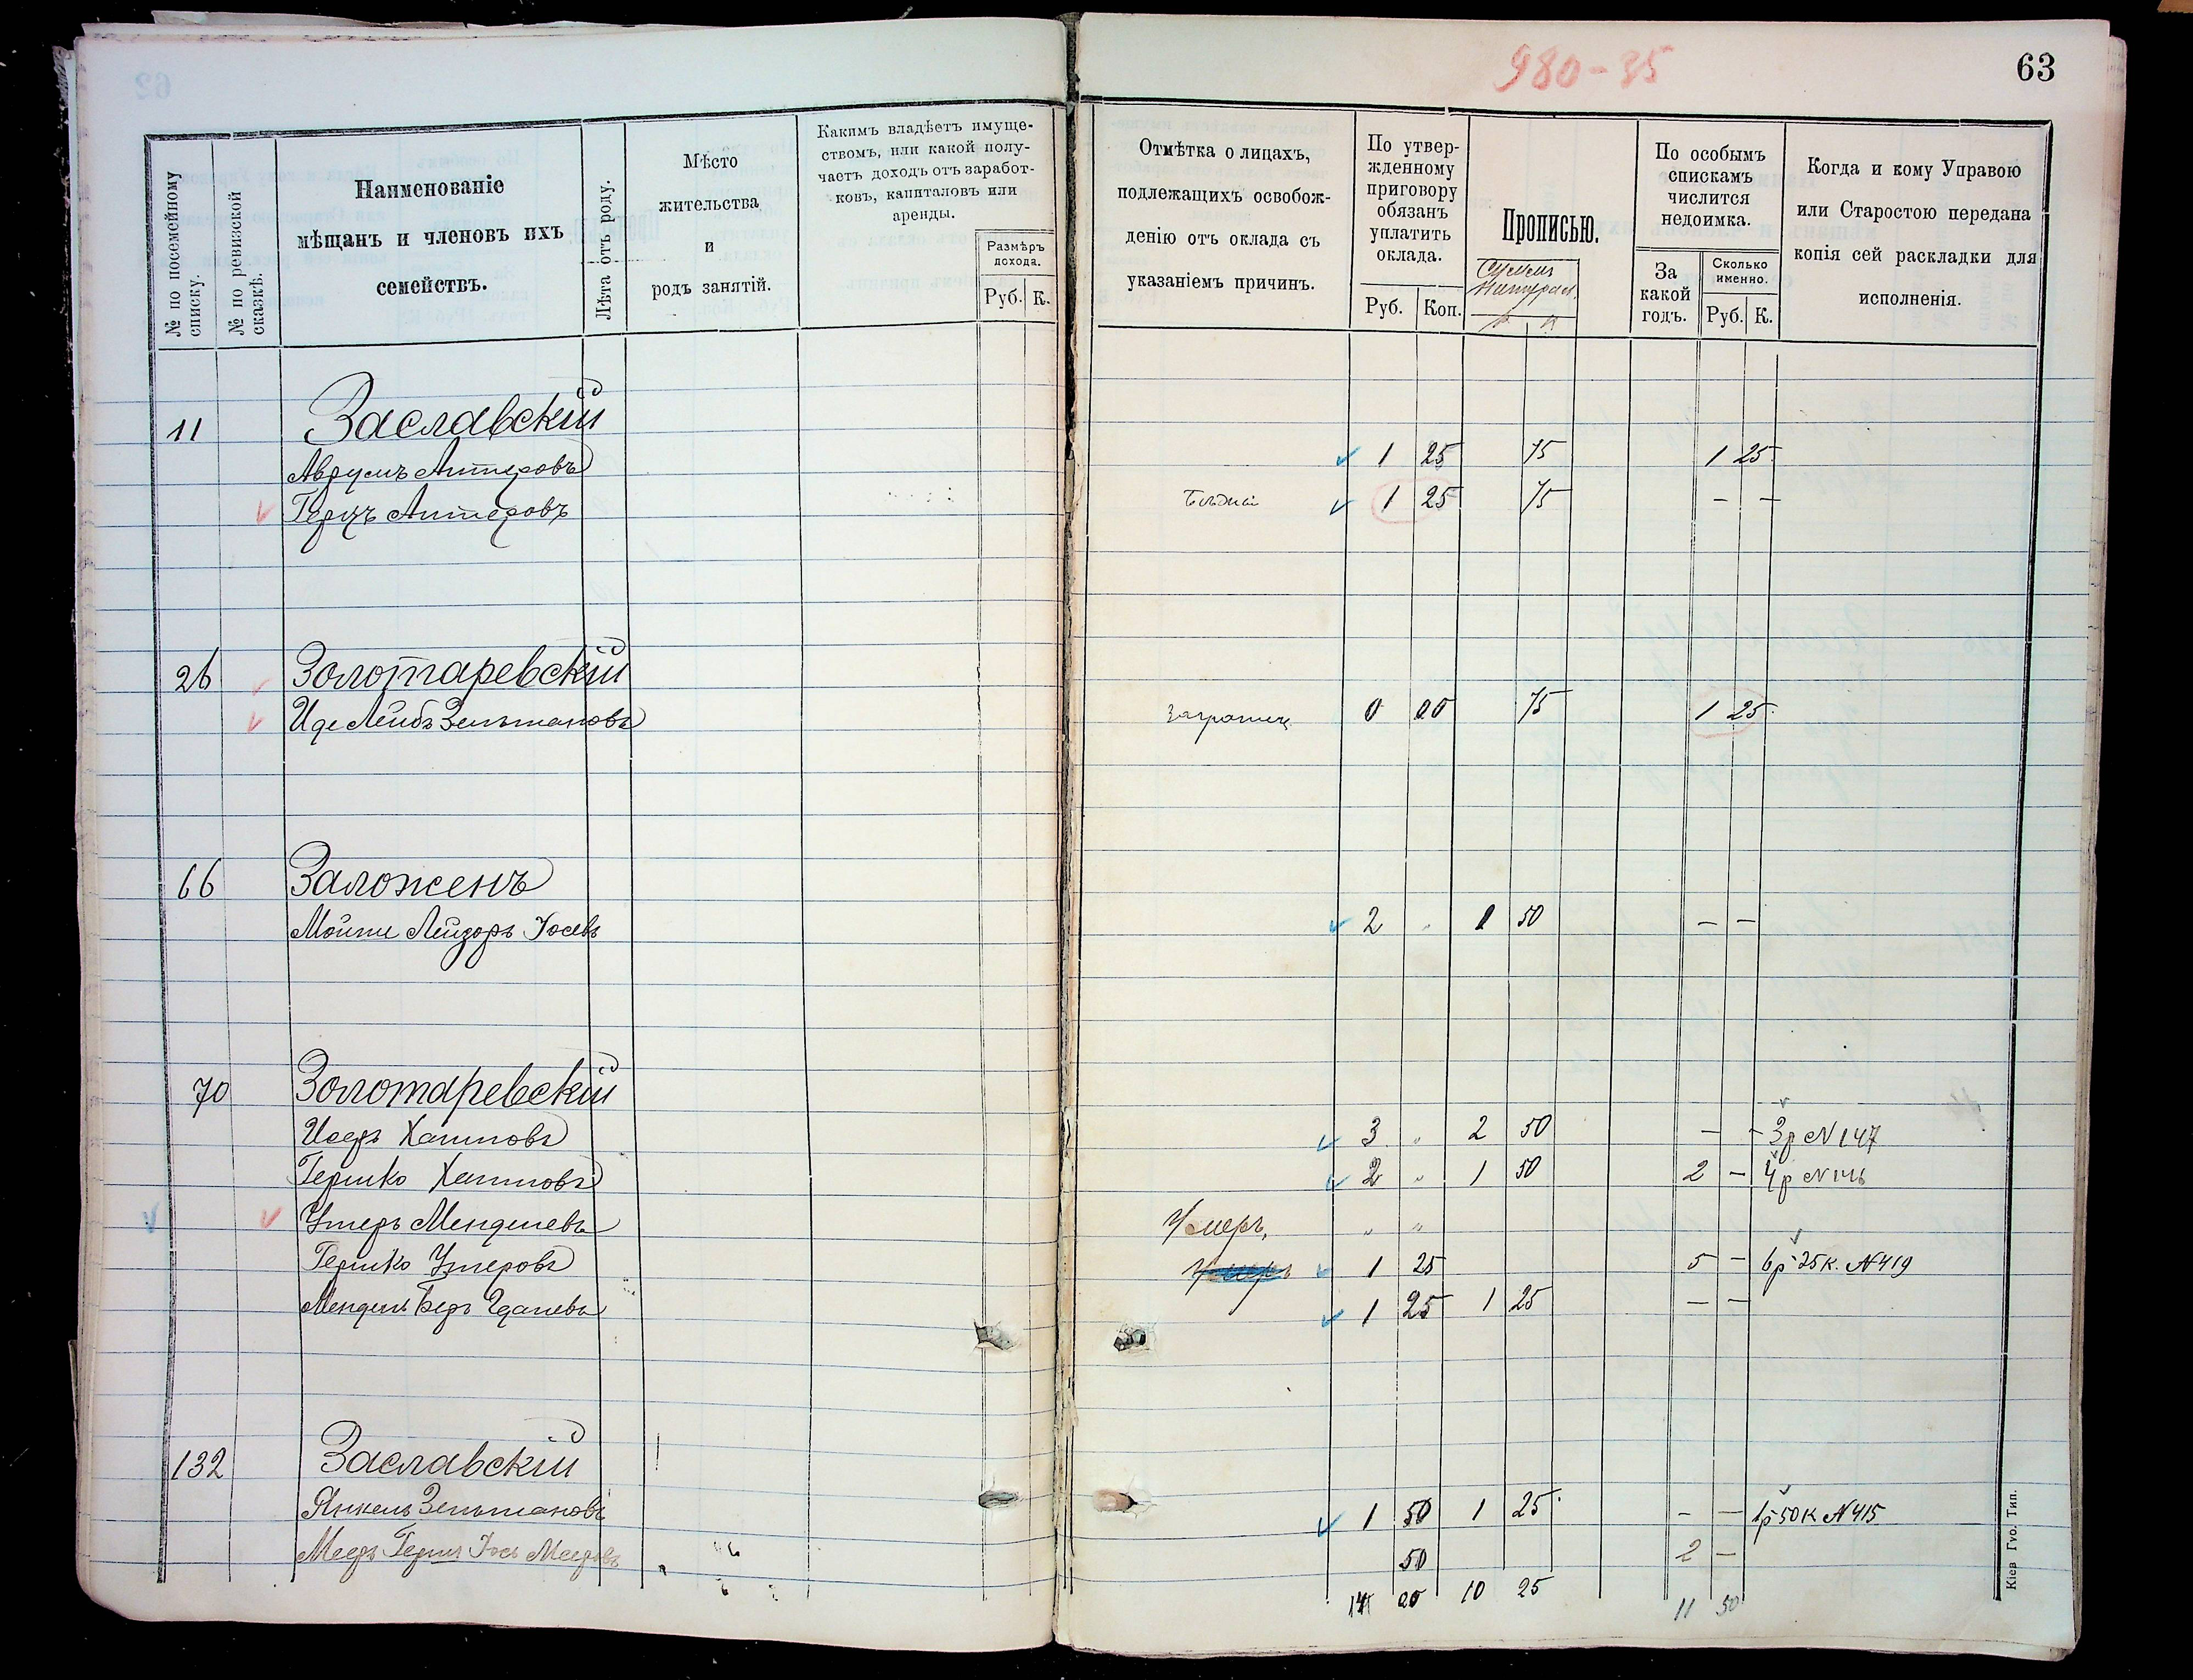 980-35
63
№ по посемейному списку.
№ по ревизской сказкѣ.
Наименованіе
мѣщанъ и членовъ ихъ
семействъ.
Лѣта отъ роду.
Мѣсто
жительства
и
родъ занятій.
Какимъ владѣетъ имуще-
ствомъ, или какой полу-
чаетъ доходъ отъ заработ-
ковъ, капиталовъ или
аренды.
Размѣръ
дохода.
Руб. К.
Отмѣтка о лицахъ,
подлежащихъ освобож-
денію отъ оклада съ
указаніемъ причинъ.
По утвер-
жденному
приговору
обязанъ
уплатить
оклада.
Руб. Коп.
Прописью.
По особымъ
спискамъ
числится
недоимка.
За
какой
годъ.
Сколько
именно.
Руб. К.
Когда и кому Управою
или Старостою передана
копія сей раскладки для
исполненія.
11 Заславскій
Аврумъ Антеровъ 1 25 75 1 25
Герцъ Антеровъ 1 25 75 — —
26 Золотаревскій
Иде Лейбъ Зельмановъ заграниц 0 00 75 1 25
66 Заложенъ
Мойше Лейзоръ Іосевъ 2 „ 1 50 — —
70 Золотаревскій
Хаимовъ 3 „ 2 50 — — 3р N 147
Гершко Хаимовъ 2 „ 1 50 2 — 4р N 146
Умеръ Менделевъ Умеръ, „ „
Гершко Умеровъ 1 25 5 — 6р 25к. N 419
Мендель Беръ 1 25 1 25 — —
132 Заславскій
Янкель Зельмановъ 1 50 1 25 — — 1р 50к N 415
Мееръ Герш Іось Мееровъ 50 2 —
14 00 10 25 11 50
Кіев Губ. Тип.